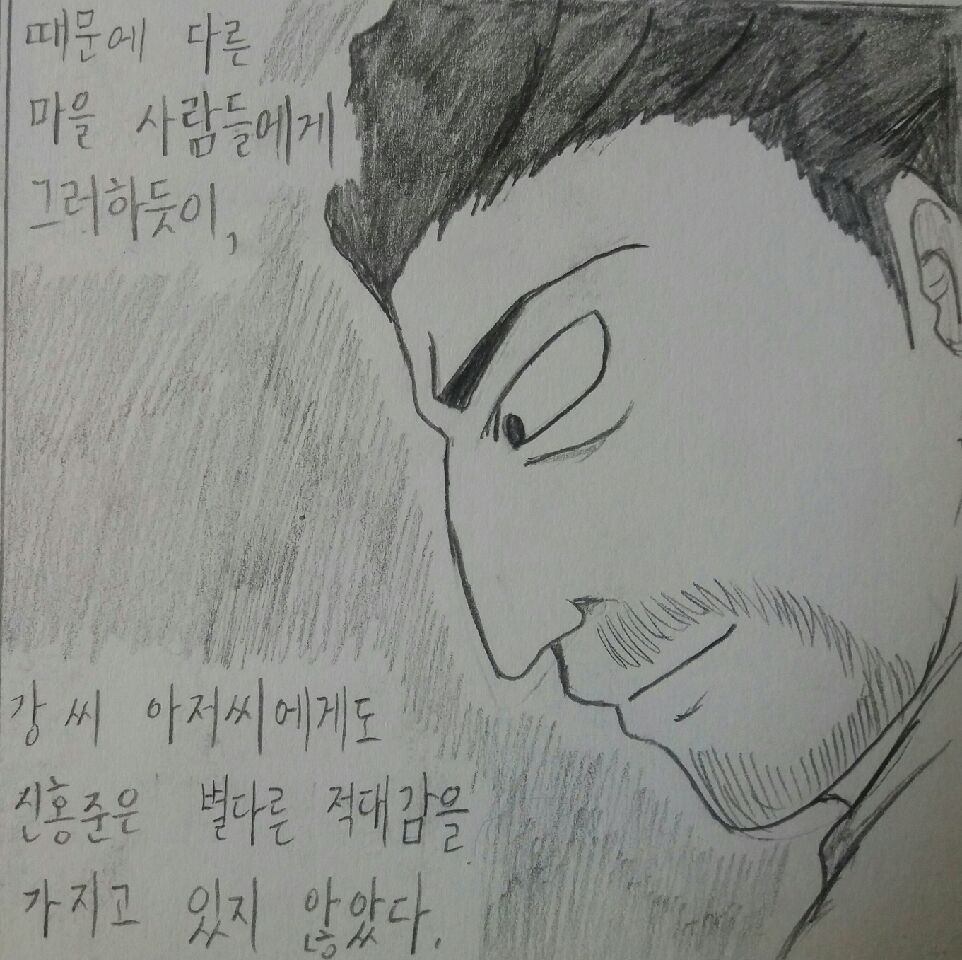 때문에 다른
마을 사람들에게
그러하듯이,
강 씨 아저씨에게도
신홍준은 별다른 적대감을
가지고 있지 않았다.